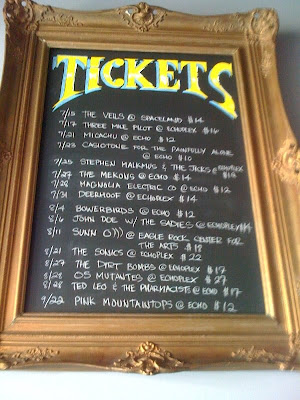 TICKETS
7/15 THE VEILS @ SPACELAND $14
7/17 THREE MILE PILOT @ ECHOPLEX $16
7/21 MICACHU @ ECHO $12
7/23 CASIOTONE FOR THE PAINFULLY ALONE
@ ECHO $10
7/25 STEPHEN MALKMUS & THE JICKS @ ECHOPLEX
7/27 THE MEKONS @ ECHOPLEX $15
7/28 MAGNOLIA ELECTRIC CO @ ECHO $12
7/31 DEERHOOF @ ECHOPLEX $14
8/4 BOWERBIRDS @ ECHO $12
8/6 JOHN DOE W/ THE SADIES @ ECHOPLEX
8/11 SUNN O))) @ EAGLE ROCK CENTER FOR
THE ARTS $18
8/21 THE SONICS @ ECHOPLEX $22
8/27 THE DIRT BOMBS @ ECHOPLEX $17
8/28 OS MUTANTES @ ECHOPLEX $27
8/28 TED LEO & THE PHARMACISTS @ ECHO $17
9/22 PINK MOUNTAINTOPS @ ECHO $12